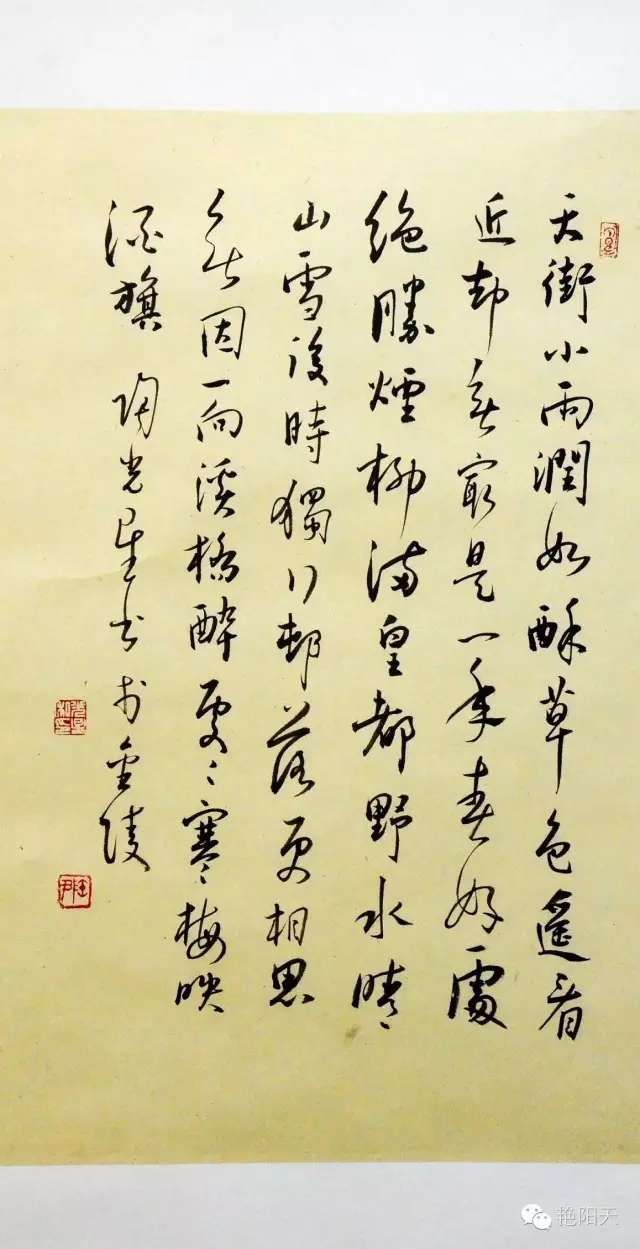 天街小雨潤如酥草色遙看
近却無最是一年春好處
絶勝煙柳滿皇都野水晴
山雪後時獨行邨落更相思
無因一向溪橋醉處〻寒梅映
酒旗 陶光星书於金陵
艳阳天